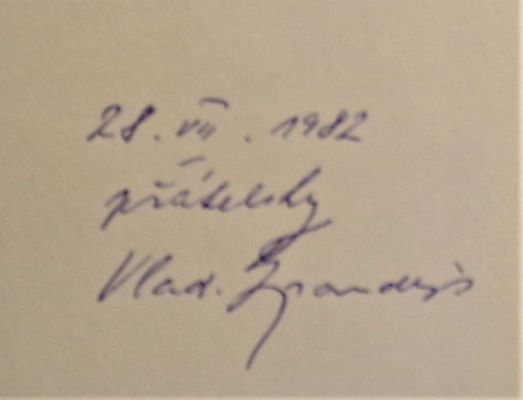 28. VII. 1982
přátelsky
Vlad. Brandejs